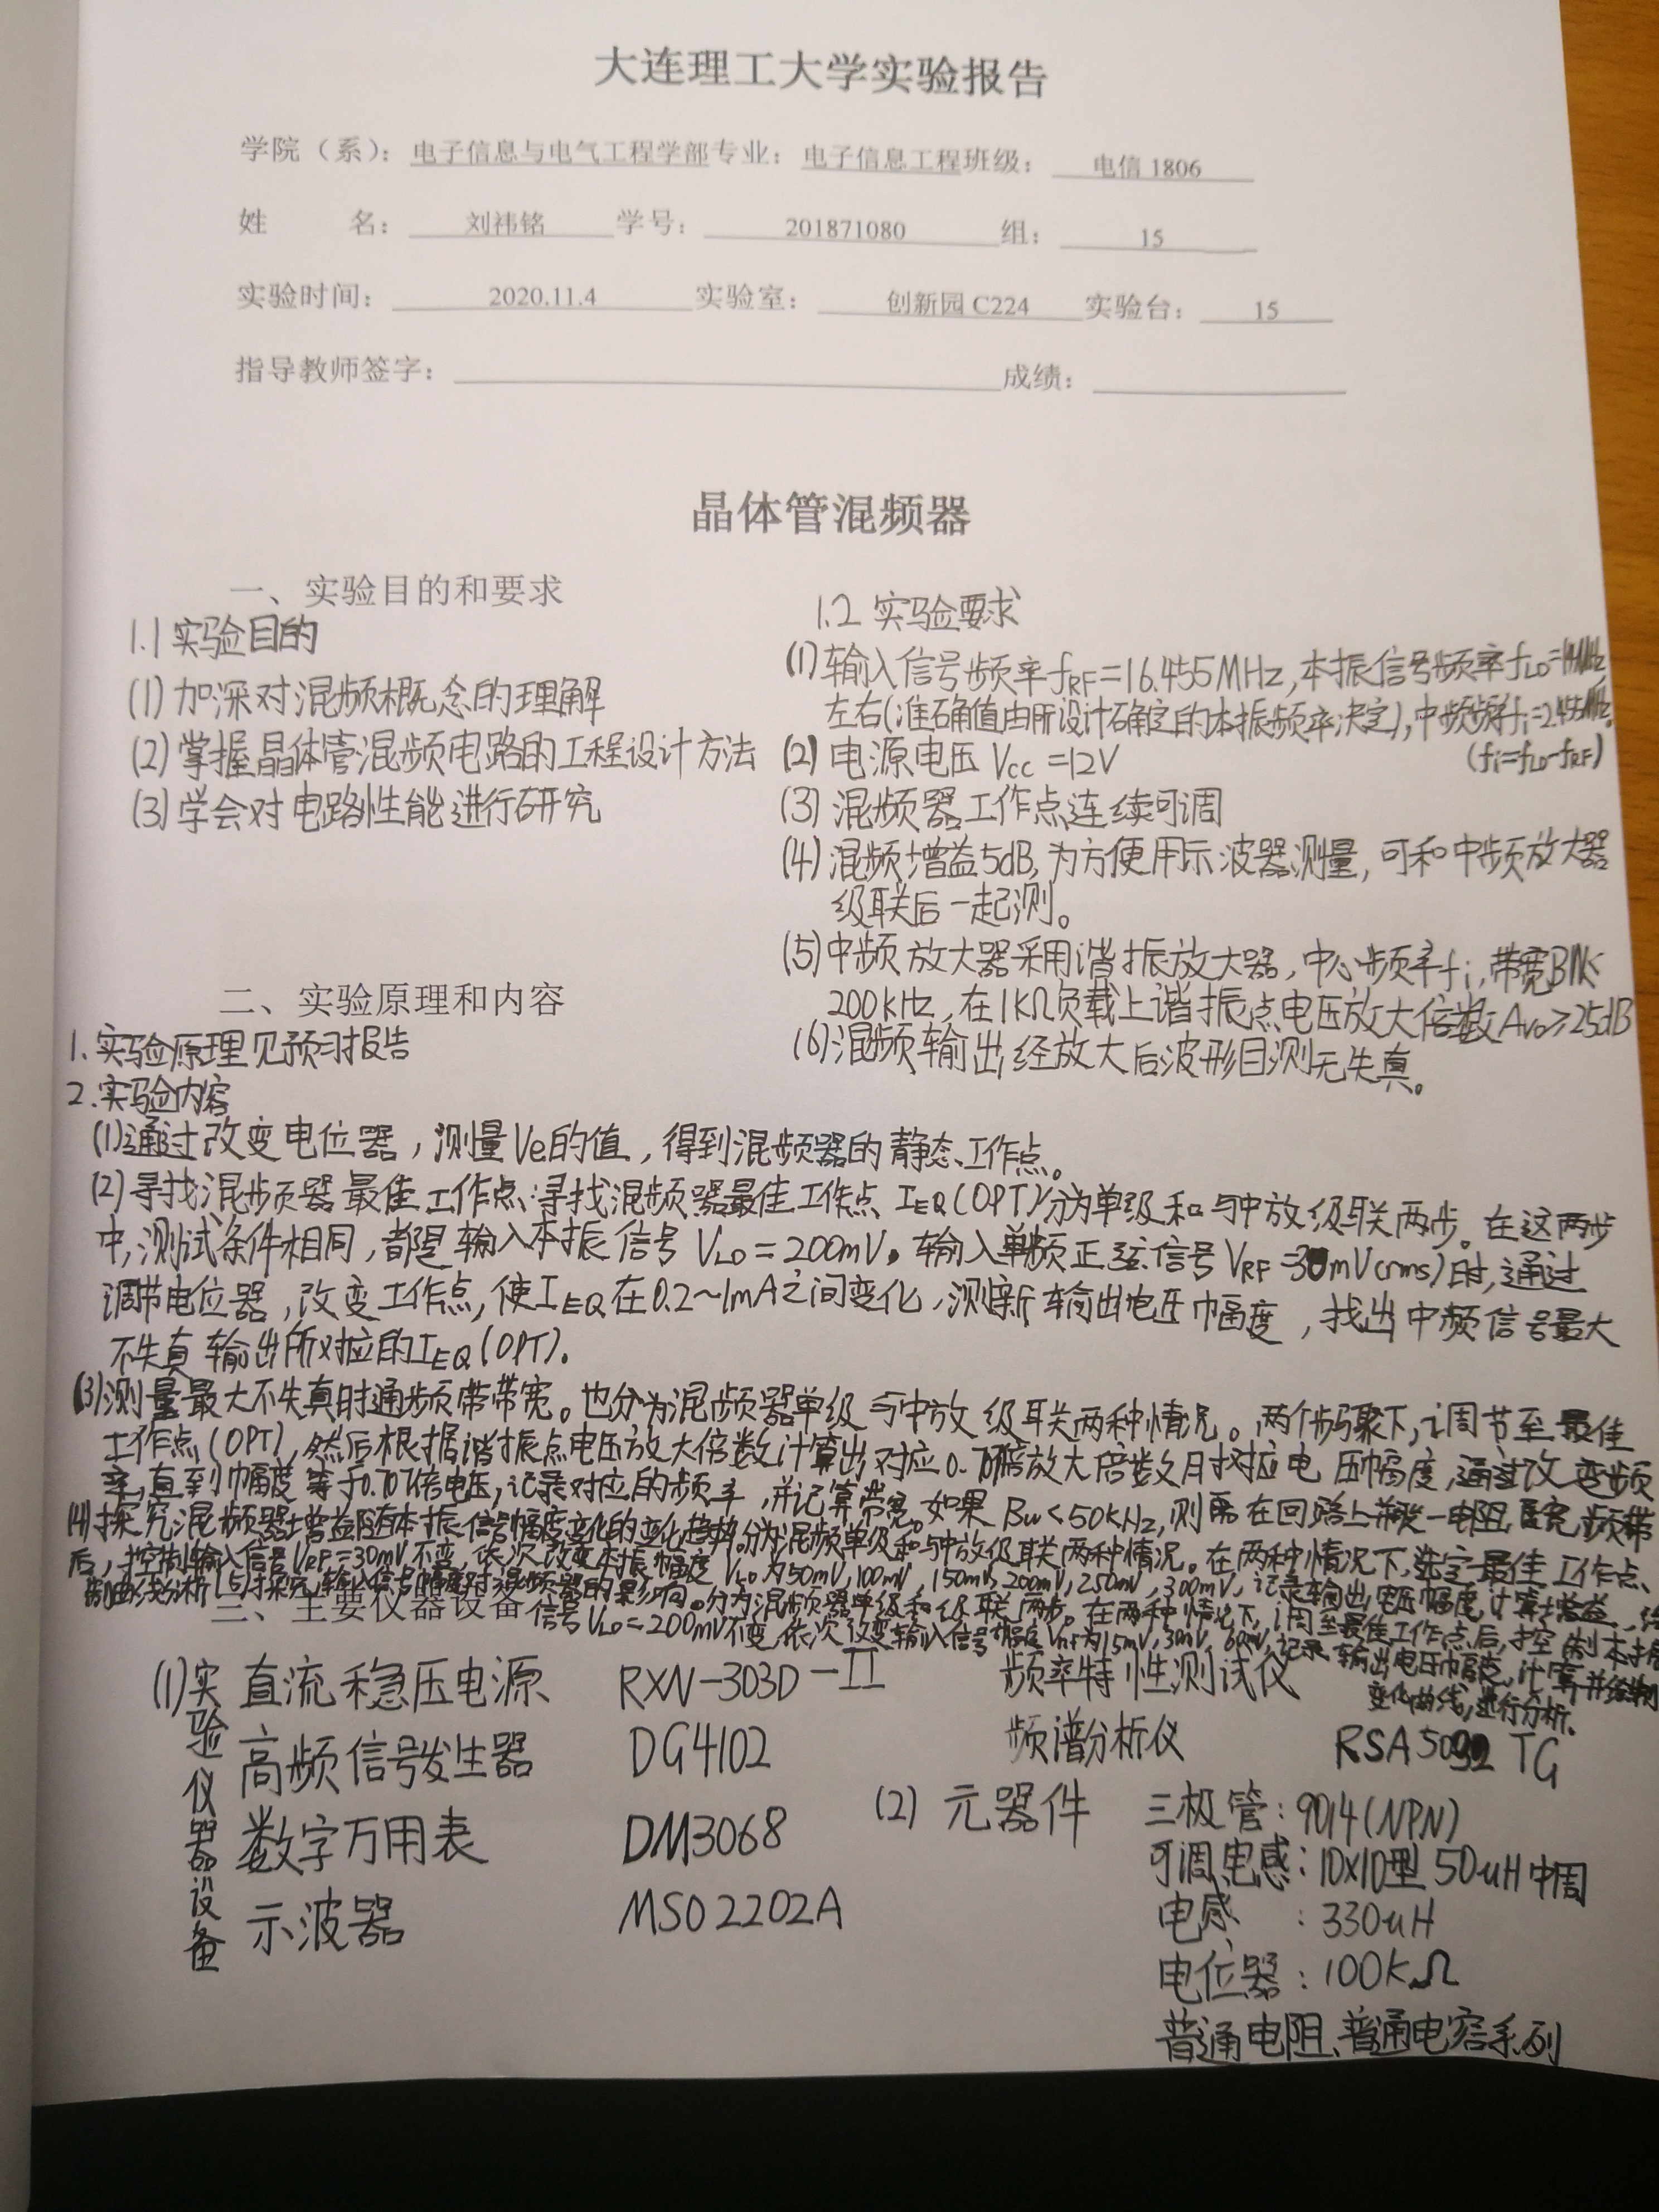 大连理工大学实验报告
学院（系）：电子信息与电气工程学部专业：电子信息工程班级：电信 1806
姓 名：刘祎铭 学号：201871080 组：15
实验时间：2020.11.4 实验室：创新园 C224 实验台：15
指导教师签字： 成绩：
晶体管混频器
一、实验目的和要求
1.1 实验目的
(1) 加深对混频概念的理解
(2) 掌握晶体管混频电路的工程设计方法
(3) 学会对电路性能进行研究
1.2 实验要求
(1) 输入信号频率fRF=16.455MHz,本振信号频率fLO=14MHz
左右(准确值由所设计确定的本振频率决定),中频频率fi=2.455MHz
(fi=fLO-fRF)
(2) 电源电压 Vcc =12V
(3) 混频器工作点连续可调
(4) 混频增益5dB,为方便用示波器测量,可和中频放大器
级联后一起测。
(5) 中频放大器采用谐振放大器,中心频率fi,带宽BW<
200kHz,在1KΩ负载上谐振点电压放大倍数Avo≥25dB
(6) 混频输出经放大后波形目测无失真。
二、实验原理和内容
1.实验原理见预习报告
2.实验内容
(1)通过改变电位器,测量Ve的值,得到混频器的静态工作点。
(2)寻找混频器最佳工作点:寻找混频器最佳工作点 IEQ(OPT)分为单级和与中放级联两步。在这两步
中,测试条件相同,都是输入本振信号 VLO=200mV。输入单频正弦信号VRF=30mV(rms)时,通过
调节电位器,改变工作点,使IEQ在0.2~1mA之间变化,测 输出电压幅度,找出中频信号最大
不失真输出所对应的IEQ(OPT).
(3)测量最大不失真时通频带带宽。也分为混频器单级与中放级联两种情况。两个步骤下,调节至最佳
工作点(OPT),然后根据谐振点电压放大倍数计算出对应0.7 倍放大倍数 对应电压幅度,通过改变频
率,直到幅度等于0.707倍电压,记录对应的频率,并记算带宽。如果 Bw<50KHz,则需在回路上并联一电阻 展宽频带
(4)探究混频器增益随本振信号幅度变化的变化趋势.分为混频单级和与中放级联两种情况。在两种情况下,选定最佳工作点
后,控制输入信号VRF=30mV不变,依次改变本振幅度 VLO为50mV,100mV,150mV,200mV,250mV,300mV,记录输出电压幅度,计算增益,绘
制曲线分析 (5)探究输入信号幅度对混频器的影响。分为混频器单级和级联两步。在两种情况下,调至最佳工作点后,控制本振
信号VLO=200mV不变,依次改变输入信号幅度VRF为15mV,30mV,60mV,记录输出电压幅度,计算并绘制
变化曲线,进行分析.
三、主要仪器设备
(1)实验仪器设备
直流稳压电源 RXN-303D-II
高频信号发生器 DG4102
数字万用表 DM3068
示波器 MSO2202A
频率特性测试仪
频谱分析仪 RSA5032 TG
(2) 元器件 三极管:9014(NPN)
可调电感:10X10型 50uH中周
电感 :330uH
电位器:100KΩ
普通电阻、普通电容系列